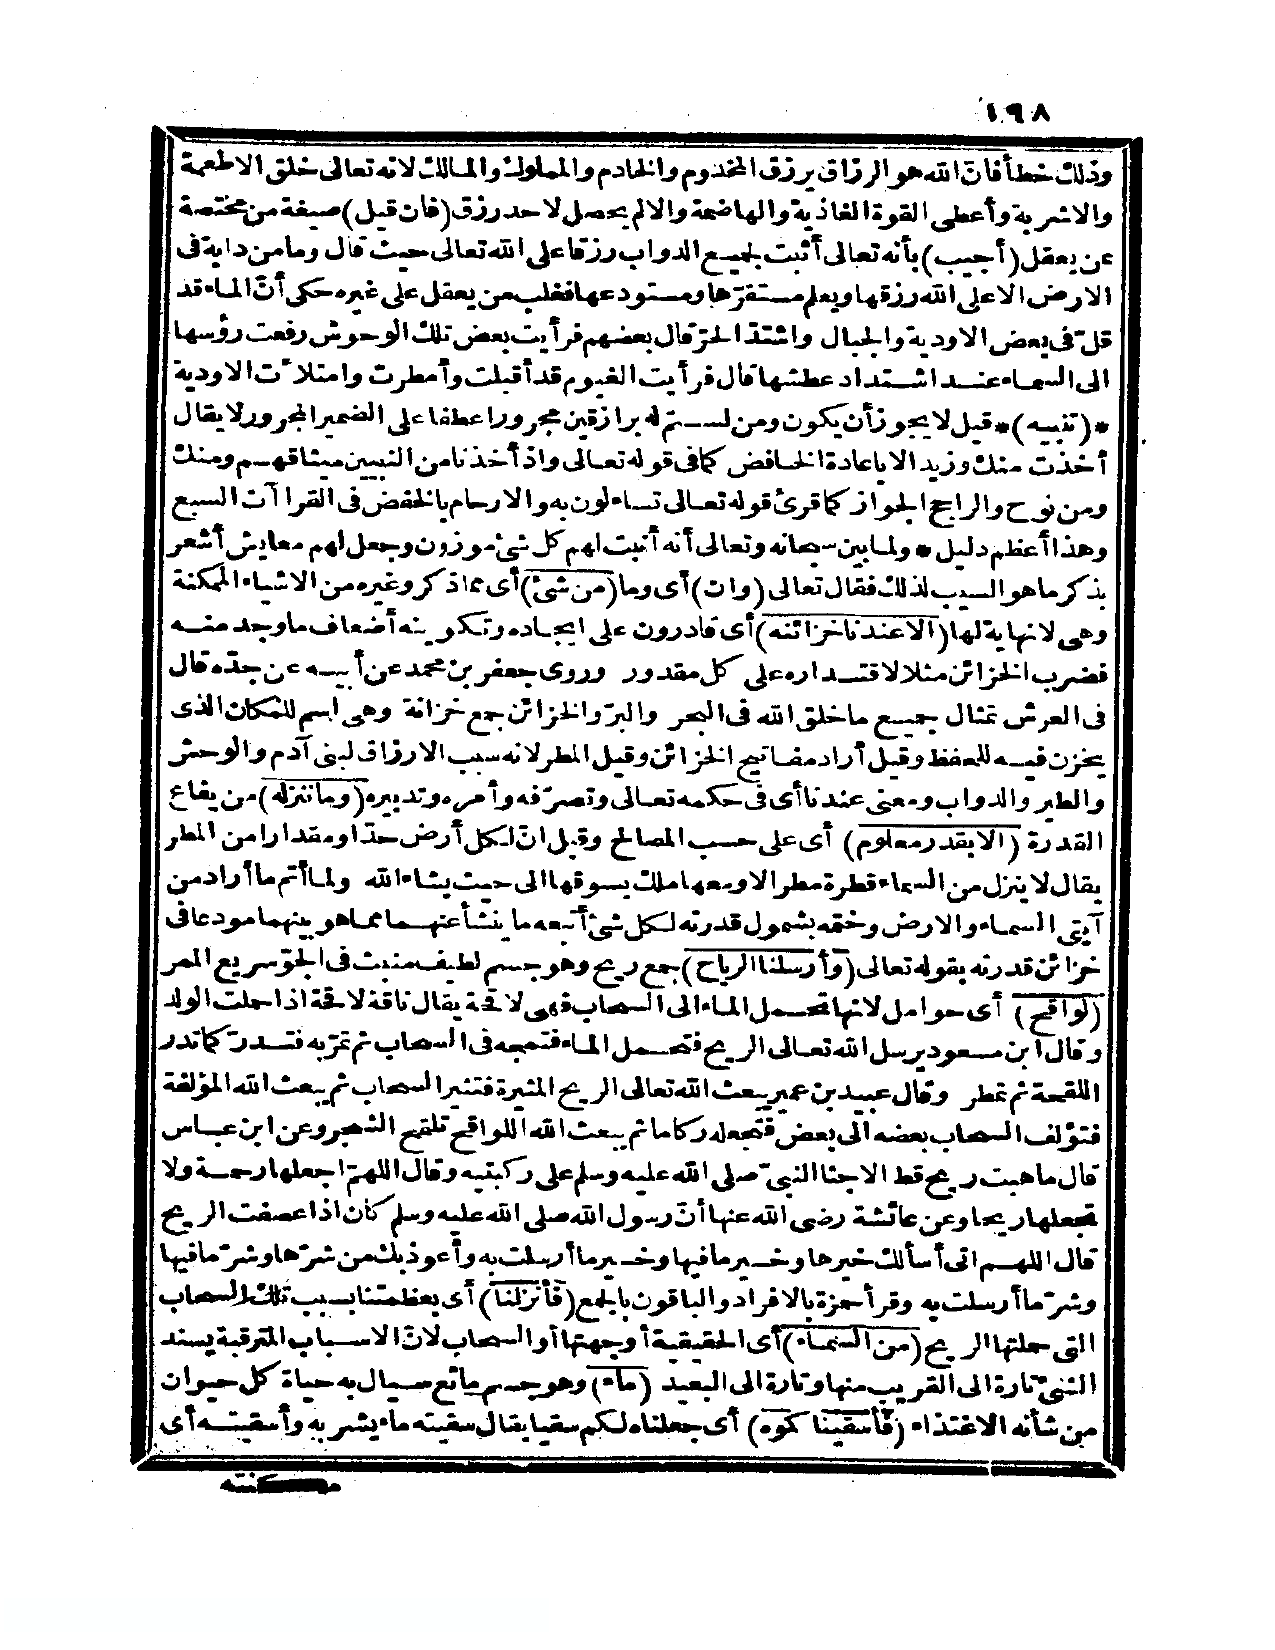 ١٩٨
وذلك خطأ فانّ الله هو الرزاق يرزق المخدوم والخادم والمملوك والمالك لانه تعالى خلق الاطعمة
والاشربة وأعطى القوة الغاذية والهاضمة والا لم يحصل لاحد رزق (فان قيل) صيغة من مختصة
عن يعقل (أجيب) بأنه تعالى أثبت لجميع الدواب رزقا على الله تعالى حيث قال وما من دابة فى
الارض الا على الله رزقها ويعلم مستقرّها ومستودعها فغلب من يعقل على غيره حكى أنّ الماء قد
قلّ فى بعض الاودية والجبال واشتدّ الحرّ قال بعضهم فرأيت بعض تلك الوحوش رفعت رؤسها
الى السماء عند اشتداد عطشها قال فرأيت الغيوم قد أقبلت وأمطرت وامتلأت الاودية
*(تنبيه)* قيل لا يجوز أن يكون ومن لستم له برازقين مجرورا عطفا على الضمير المجرور لا يقال
أخذت منك وزيد الا باعادة الخافض كما فى قوله تعالى واذ أخذنا من النبيين ميثاقهم ومنك
ومن نوح والراجح الجواز كما قرئ قوله تعالى تساءلون به والارحام بالخفض فى القراآت السبع
وهذا أعظم دليل * ولما بين سبحانه وتعالى أنه أنبت لهم كل شئ موزون وجعل لهم معايش أشعر
بذكر ما هو السبب لذلك فقال تعالى (وان) أى وما (من شئ) أى مما ذكر وغيره من الاشياء الممكنة
وهى لا نهاية لها (الا عندنا خزائنه) أى قادرون على ايجاده وتكوينه أضعاف ما وجد منه
فضرب الخزائن مثلا لاقتداره على كل مقدور وروى جعفر بن محمد عن أبيه عن جدّه قال
فى العرش تمثال جميع ما خلق الله فى البحر والبرّ والخزائن جمع خزانة وهى اسم للمكان الذى
يخزن فيه للحفظ وقيل أراد مفاتيح الخزائن وقيل المطر لانه سبب الارزاق لبنى آدم والوحش
والطير والدواب ومعنى عندنا أى فى حكمه تعالى وتصرّفه وأمره وتدبيره (وما ننزله) من بقاع
القدرة (الا بقدر معلوم) أى على حسب المصالح وقيل انّ لكل أرض حدّا ومقدارا من المطر
يقال لا ينزل من السماء قطرة مطر الا ومعها ملك يسوقها الى حيث يشاء الله ولما أتم ما أراد من
آيتى السماء والارض وختمه بشمول قدرته لكل شئ أتبعه ما ينشأ عنهما مما هو بينهما مودعا فى
خزائن قدرته بقوله تعالى (وأرسلنا الرياح) جمع ريح وهو جسم لطيف منبث فى الجوّ سريع الممر
(لواقح) أى حوامل لانها تحمل الماء الى السحاب فهى لاقحة يقال ناقة لاقحة اذا حملت الولد
وقال ابن مسعود يرسل الله تعالى الريح فتحمل الماء فتمجه فى السحاب ثم تمرّ به فتدرّ كما تدر
اللقحة ثم تمطر وقال عبيد بن عمير يبعث الله تعالى الريح المثيرة فتثير السحاب ثم يبعث الله المؤلفة
فتؤلف السحاب بعضه الى بعض فتجعله ركاما ثم يبعث الله اللواقح تلقح الشجر وعن ابن عباس
قال ما هبت ريح قط الا جثا النبىّ صلى الله عليه وسلم على ركبتيه وقال اللهمّ اجعلها رحمة ولا
تجعلها ريحا وعن عائشة رضى الله عنها أنّ رسول الله صلى الله عليه وسلم كان اذا عصفت الريح
قال اللهم انى أسألك خيرها وخير ما فيها وخير ما أرسلت به وأعوذ بك من شرّها وشرّ ما فيها
وشرّ ما أرسلت به وقرأ حمزة بالافراد والباقون بالجمع (فأنزلنا) أى بعظمتنا بسبب تلك السحاب
التى حملتها الريح (من السماء) أى الحقيقية أو جهتها أو السحاب لانّ الاسباب المترقبة يسند
الشئ تارة الى القريب منها وتارة الى البعيد (ماء) وهو جسم مائع سيال به حياة كل حيوان
من شأنه الاغتذاء (فأسقيناكموه) أى جعلناه لكم سقيا يقال سقيته ماء يشربه وأسقيته أى